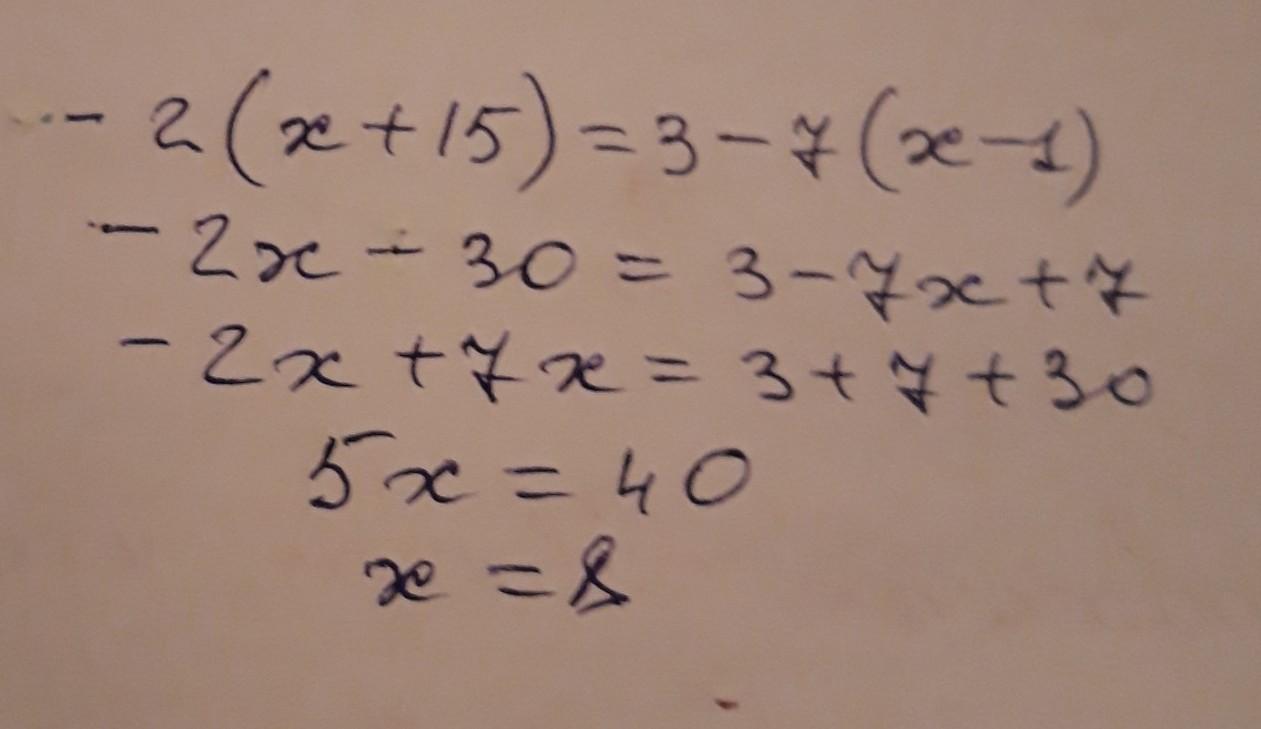 - 2(x+15)=3-7(x-1)
- 2x - 30 = 3-7x+7
- 2x +7x = 3+7+30
5x = 40
x = 8